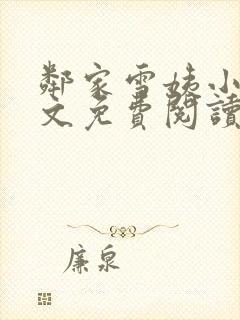 鄰家雪姨小
文免費閱讀
廉泉